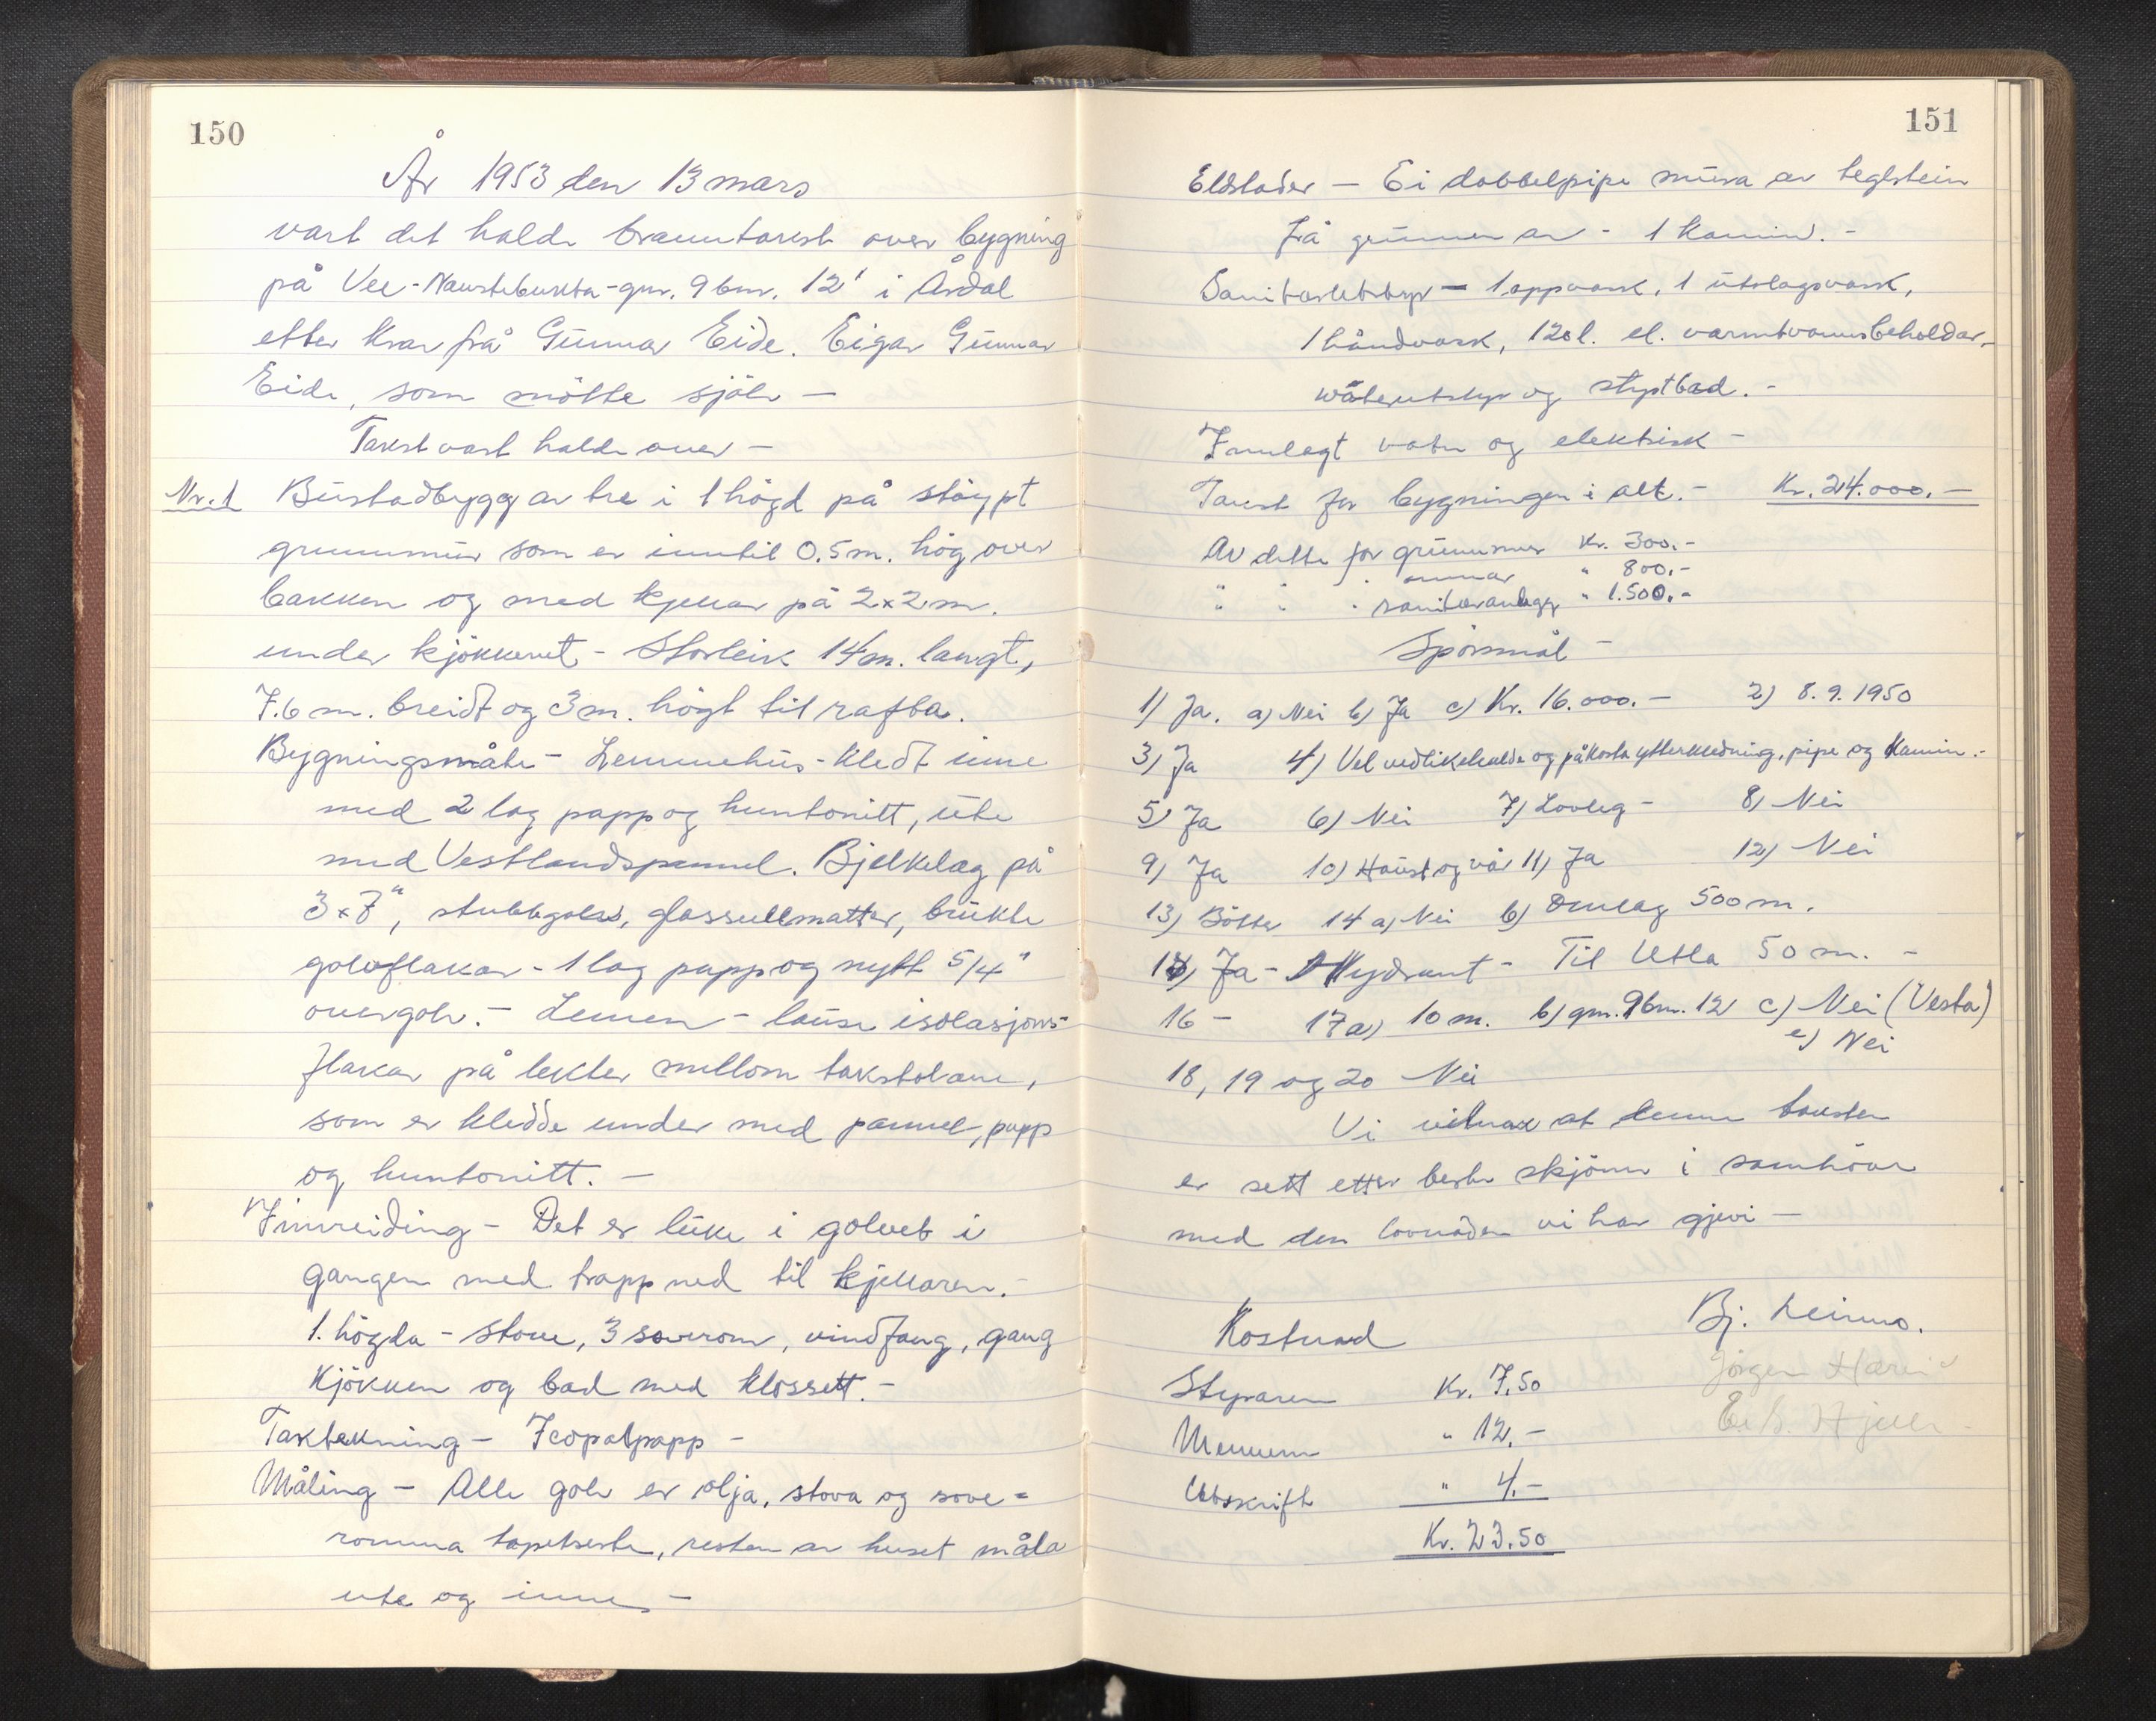 150
År 1953 den 13 mars
vart det halde branntakst over bygning
på Vee-Naustebukta-gnr. 9 bnr. 12' i Årdal
etter krav frå Gunnar Eide. Eigar Gunnar
Eide, som møtte sjølv —
Takst vart halde over —
Nr. 1 Bustadbygg av tre i 1 högd på stöypt
grunnmur som er inntil 0.5 m. hög over
bakken og med kjellar på 2x2 m.
under kjökkenet - Storleik 14 m. langt,
7.6 m. breidt og 3 m. högt til rafta.
Bygningsmåte - Lemmehus - kledt inne
med 2 lag papp og huntonitt, ute
med Vestlandspannel. Bjelkelag på
3x7", stubbgolv, glassullmatter, brukte
golvflakar - 1 lag papp og nytt 5/4"
overgolv. - Lemen - lause isolasjons-
flakar på lekter mellom takstolane,
som er kledde under med pannel, papp
og huntonitt. —
Innreiding - Det er luke i golvet i
gangen med trapp ned til kjellaren. -
1. högda - stove, 3 soverom, vindfang, gang
kjökken og bad med klossett. -
Taktekning - Icopalpapp -
Måling - Alle golv er olja, stova og sove=
romma tapetserte, resten av huset måla
ute og inne —
151
Eldstader — Ei dobbelpipe mura av teglstein
frå grunnen av - 1 kamin. -
Sanitærutstyr — 1 oppvask, 1 utslagsvask,
1 håndvask, 120 l. el. varmtvannsbeholdar,
wåterutstyr og styrtbad. -
Innlagt vatn og elektrisk -
Takst for bygningen i alt. - Kr. 24.000. —
Av dette for grunnmur Kr. 300.-
" " " annar " 800.-
" " " sanitæranlegg " 1.500.-
Spörsmål -
1) Ja. a) Nei b) Ja c) Kr. 16.000. - 2) 8.9.1950
3) Ja 4) Vel vedlikehalde og påkosta ytterkledning, pipe og kamin. -
5) Ja 6) Nei 7) Lovleg - 8) Nei
9) Ja 10) Haust og vår 11) Ja 12) Nei
13) Bötter 14 a) Nei b) Omlag 500 m.
15) Ja - Hydrant - Til Utla 50 m. -
16 - 17 a) 10 m. b) gnr. 9 bnr. 12 c) Nei (Vesta)
e) Nei
18, 19 og 20 Nei
Vi vitnar at denne taksten
er sett etter beste skjönn i samhöve
med den lovnaden vi har gjevi —
Kostnad
Bj. Leirmo.
Styraren Kr. 7.50
Jörgen
Mennene " 12. -
Hjelle
Utskrift " 4. -
Kr. 23.50